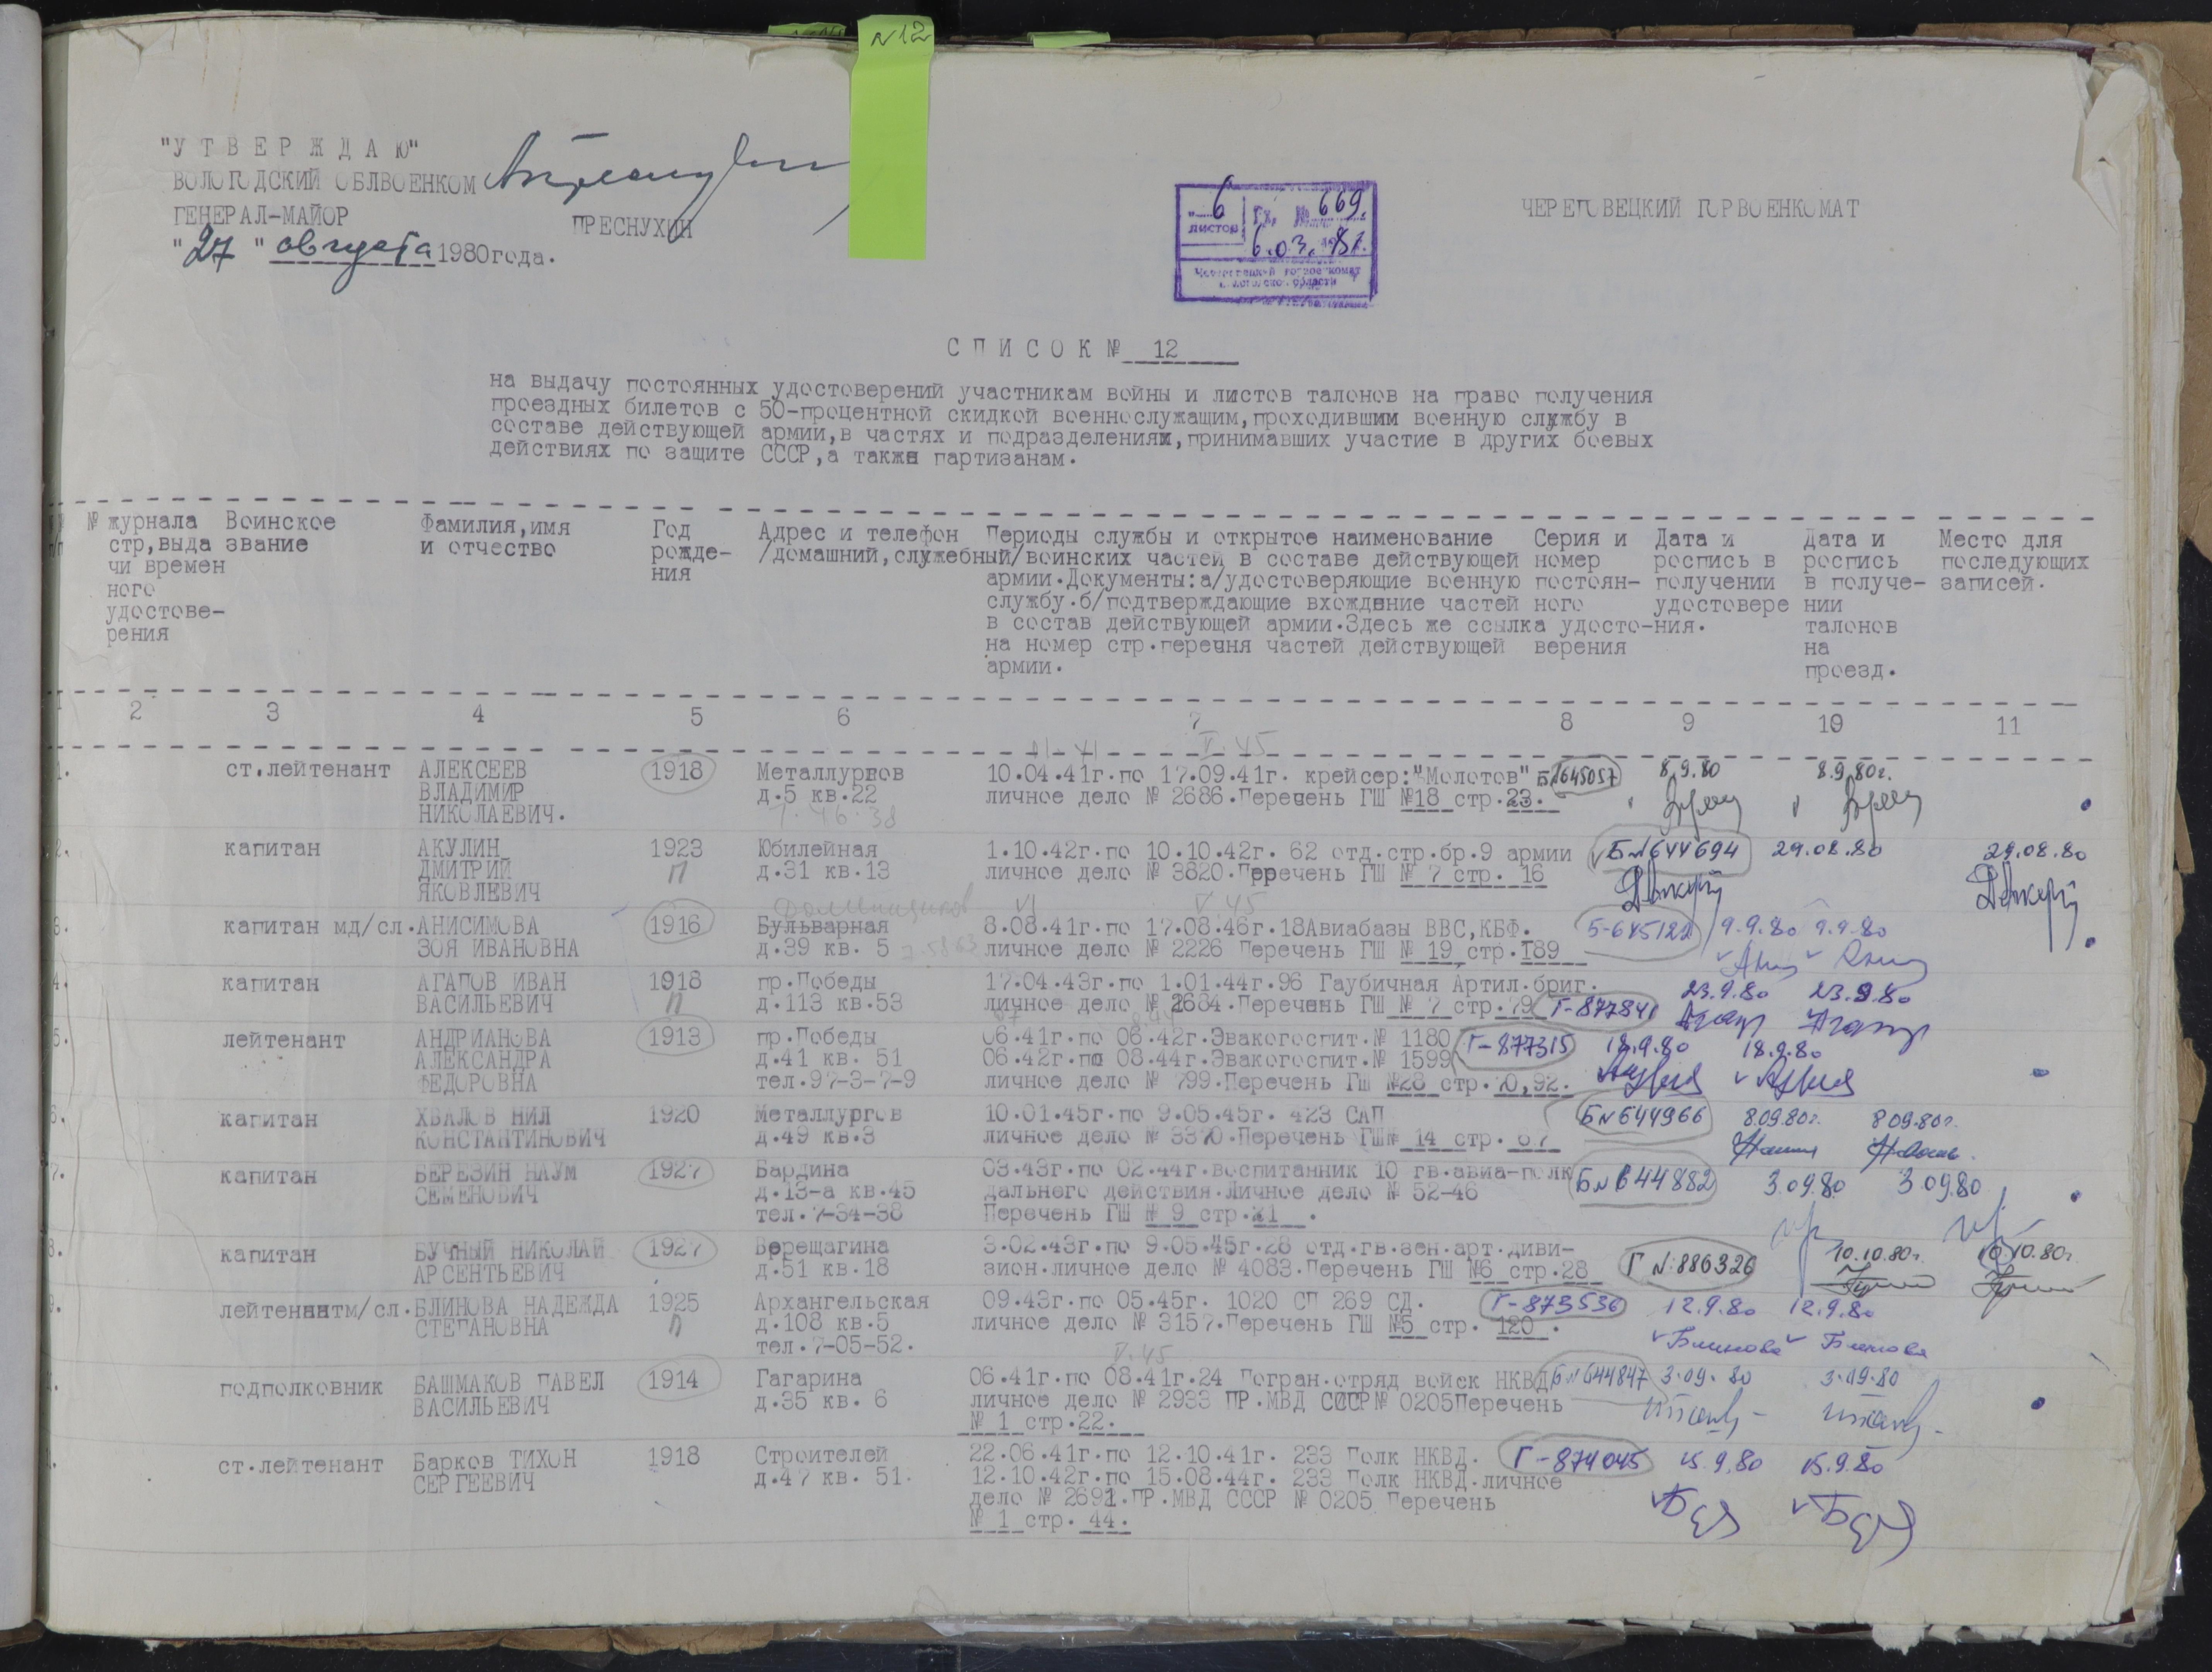 №12
"У Т В Е Р Ж Д А Ю"
ВОЛОГОДСКИЙ ОБЛВОЕНКОМ
ГЕНЕРАЛ-МАЙОР ПРЕСНУХИН
"27" августа 1980года.
6 листов Вх. № 669.
6.03.1981.
Череповецкий горвоенкомат
Вологодской области
ЧЕРЕПОВЕЦКИЙ ГОРВОЕНКОМАТ
С П И С О К № 12
на выдачу постоянных удостоверений участникам войны и листов талонов на право получения
проездных билетов с 50-процентной скидкой военнослужащим,проходившим военную службу в
составе действующей армии,в частях и подразделениях,принимавших участие в других боевых
действиях по защите СССР,а также партизанам.
№ журнала стр,выда чи времен ного удостове- рения
Воинское звание
Фамилия,имя и отчество
Год рожде- ния
Адрес и телефон /домашний,служебный/
Периоды службы и открытое наименование
воинских частей в составе действующей
армии.Документы:а/удостоверяющие военную
службу.б/подтверждающие вхождение частей
в состав действующей армии.Здесь же ссылка
на номер стр.перечня частей действующей
армии.
Серия и номер постоян- ного удосто- верения
Дата и роспись в получении удостовере ния.
Дата и роспись в получе- нии талонов на проезд.
Место для последующих записей.
2 3 4 5 6 7 8 9 10 11
V.45
1. ст.лейтенант АЛЕКСЕЕВ 1918 Металлургов 10.04.41г.по 17.09.41г. крейсер:"Молотов" Б№645057 8.9.80 8.9.80г.
ВЛАДИМИР д.5 кв.22 личное дело № 2686.Перечень ГШ №18 стр.23.
НИКОЛАЕВИЧ. 7.46.38
2. капитан АКУЛИН 1923 Юбилейная 1.10.42г.по 10.10.42г. 62 отд.стр.бр.9 армии Б№644694 29.08.80 29.08.80
ДМИТРИЙ П д.31 кв.13 личное дело № 3820.Перречень ГШ № 7 стр. 16
ЯКОВЛЕВИЧ
VI V.45
3. капитан мд/сл.АНИСИМОВА 1916 Бульварная 8.08.41г.по 17.08.46г.18Авиабазы ВВС,КБФ. Б-645122 9.9.80 9.9.80
ЗОЯ ИВАНОВНА д.39 кв. 5 личное дело № 2226 Перечень ГШ № 19 стр.189
4. капитан АГАПОВ ИВАН 1918 пр.Победы 17.04.43г.по 1.01.44г.96 Гаубичная Артил.бриг. 23.9.80 23.9.80
ВАСИЛЬЕВИЧ П д.113 кв.53 личное дело № 2684.Перечень ГШ № 7 стр.79 Г-877841
5. лейтенант АНДРИАНОВА 1913 пр.Победы 06.41г.по 06.42г.Эвакогоспит.№ 1180 Г-877315 18.9.80 18.9.80
АЛЕКСАНДРА д.41 кв. 51 06.42г.по 08.44г.Эвакогоспит.№ 1599
ФЕДОРОВНА тел.97-3-7-9 личное дело № 799.Перечень ГШ №28 стр.70,92.
6. капитан ХВАЛОВ НИЛ 1920 Металлургов 10.01.45г.по 9.05.45г. 423 САП Б№644966 8.09.80г. 8.09.80г.
КОНСТАНТИНОВИЧ д.49 кв.3 личное дело № 3370.Перечень ГШ№ 14 стр. 67
7. капитан БЕРЕЗИН НАУМ 1927 Бардина 03.43г.по 02.44г.воспитанник 10 гв.авиа-полк Б№644882 3.09.80 3.09.80
СЕМЕНОВИЧ д.13-а кв.45 дальнего действия.Личное дело № 52-46
тел.7-34-38 Перечень ГШ № 9 стр.21 .
8. капитан БУЧНЫЙ НИКОЛАЙ 1927 Верещагина 3.02.43г.по 9.05.45г.28 отд.гв.зен.арт.диви- Г №:886326 10.10.80г. 10.10.80г.
АРСЕНТЬЕВИЧ д.51 кв.18 зион.личное дело № 4083.Перечень ГШ №6 стр.28
9. лейтенантм/сл.БЛИНОВА НАДЕЖДА 1925 Архангельская 09.43г.по 05.45г. 1020 СП 269 СД. Г-873536 12.9.80 12.9.80
СТЕПАНОВНА П д.108 кв.5 личное дело № 3157.Перечень ГШ №5 стр. 120 . Блинова Блинова
тел.7-05-52.
V.45
подполковник БАШМАКОВ ПАВЕЛ 1914 Гагарина 06.41г.по 08.41г.24 Погран.отряд войск НКВД Б№644847 3.09.80 3.09.80
ВАСИЛЬЕВИЧ д.35 кв. 6 личное дело № 2933 ПР.МВД СССР№ 0205Перечень
№ 1 стр.22.
ст.лейтенант Барков ТИХОН 1918 Строителей 22.06.41г.по 12.10.41г. 233 Полк НКВД. Г-874045 15.9.80 15.9.80
СЕРГЕЕВИЧ д.47 кв. 51. 12.10.42г.по 15.08.44г. 233 Полк НКВД.личное
дело № 2691.ПР.МВД СССР № 0205 Перечень
№ 1 стр. 44.